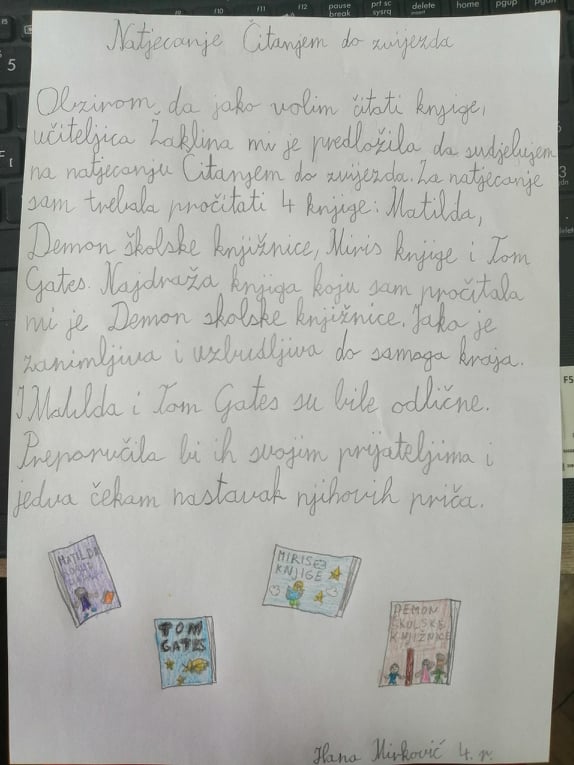 Natjecanje Čitanjem do zvijezda
Obzirom, da jako volim čitati knjige,
učiteljica Žaklina mi je predložila da sudjelujem
na natjecanju Čitanjem do zvijezda. Za natjecanje
sam trebala pročitati 4 knjige: Matilda,
Demon školske knjižnice, Miris knjige i Tom
Gates. Najdraža knjiga koju sam pročitala
mi je Demon skolske knjižnice. Jako je
zanimljiva i uzbudljiva do samoga kraja.
I Matilda i Tom Gates su bile odlične.
Preporučila bi ih svojim prijateljima i
jedva čekam nastavak njihovih priča.
MATILDA
MIRIS
KNJIGE
TOM
GATES
DEMON
ŠKOLSKE
KNJIŽNICE
Hana Mirković 4. r.